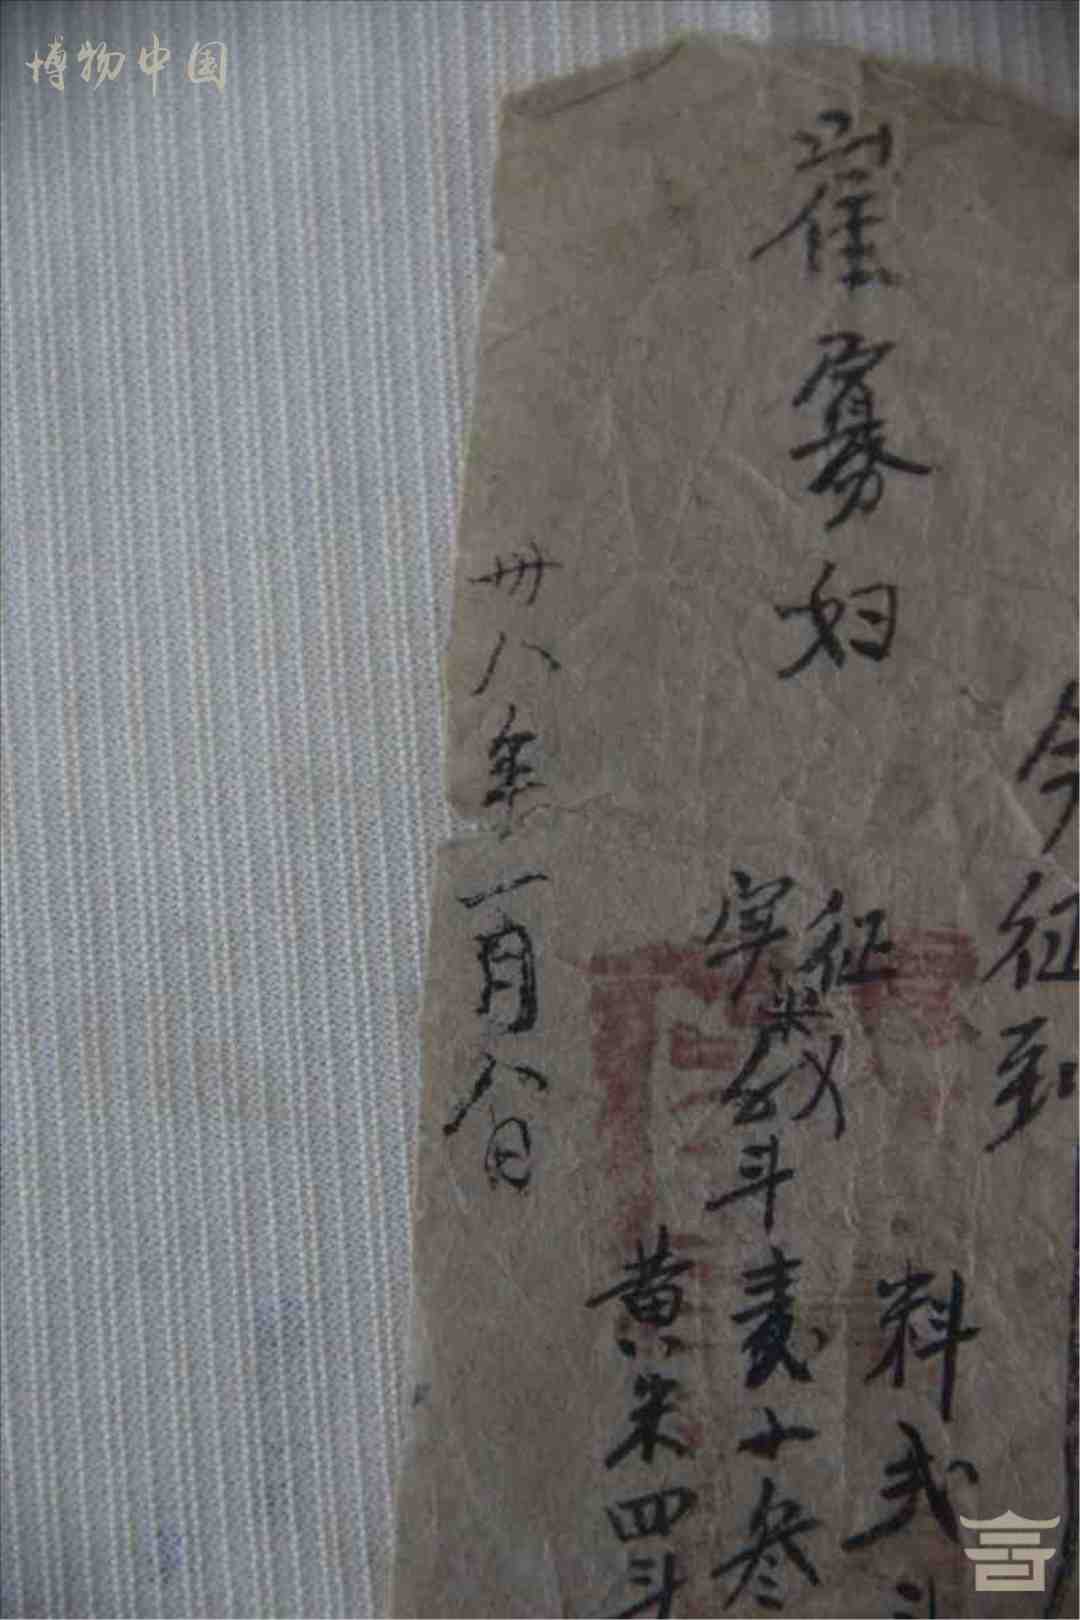 博物中国
今征到
料弍斗
崔寡妇
征
实
斗
十叁
黄米四斗
卅八年一月八日